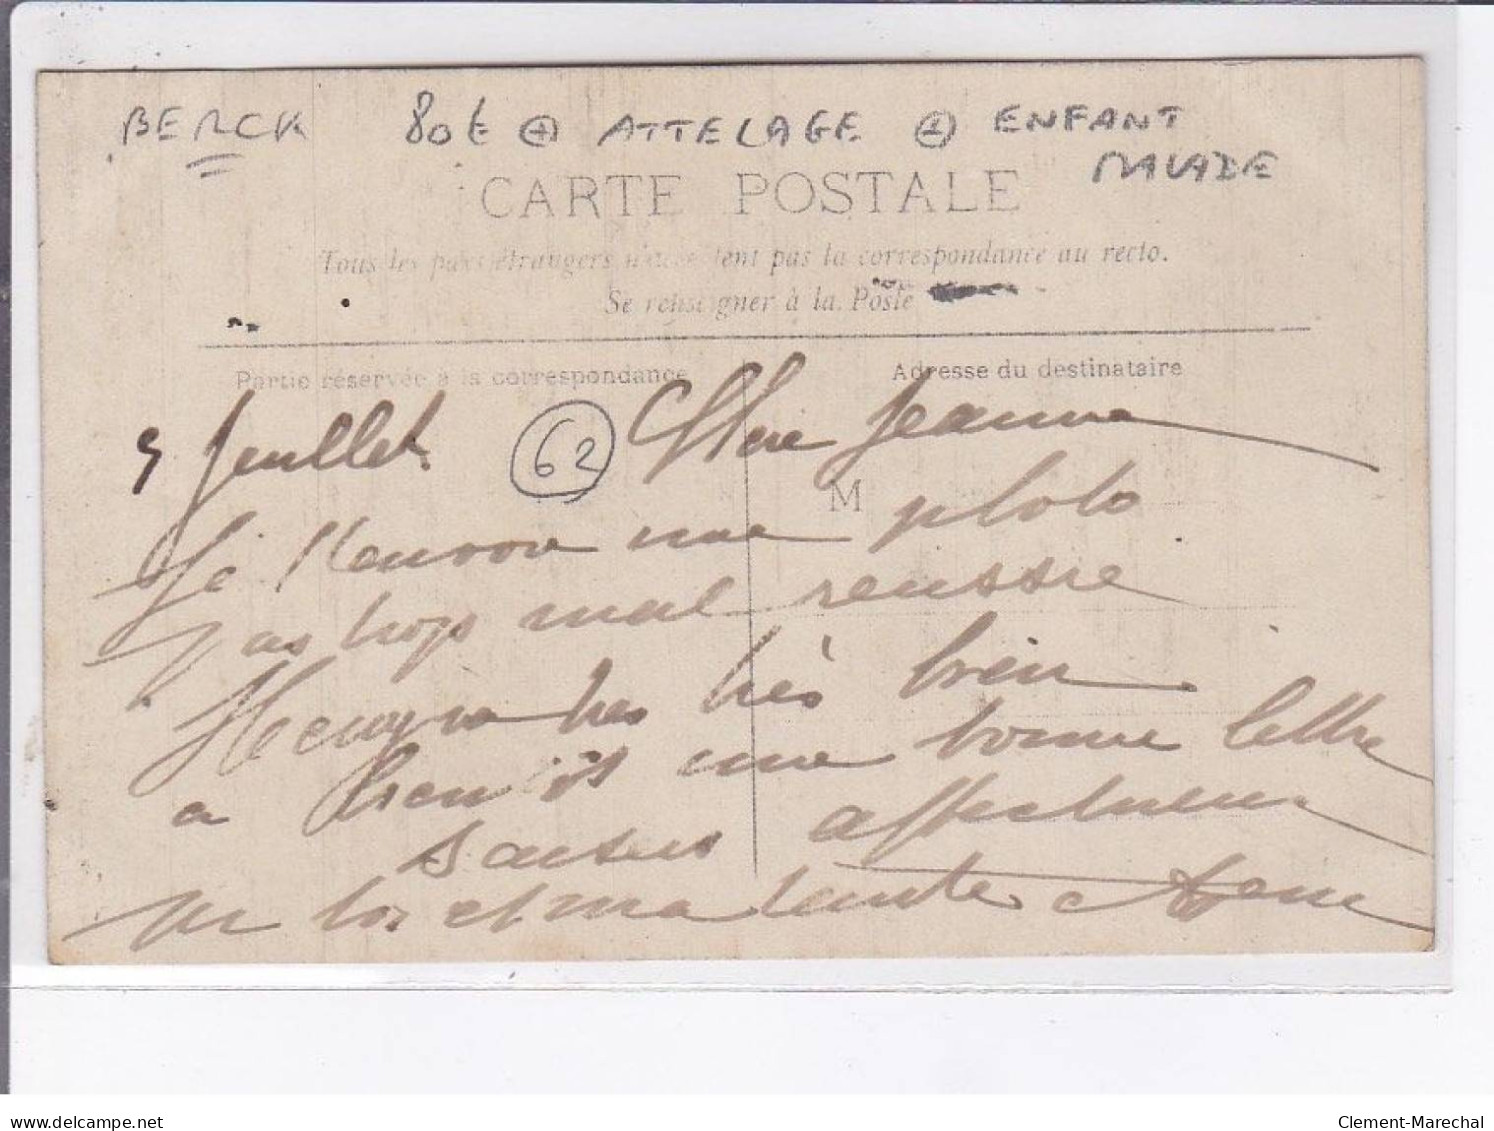 BERCK 80€ + ATTELAGE + ENFANT
MALADE
CARTE POSTALE
Tous les pays étrangers n'acceptent pas la correspondance au recto.
Se renseigner à la Poste
Partie réservée à la correspondance
Adresse du destinataire
5 Juillet
62
Chère Jeanne
M
Je t'envoie une photo
pas trop mal reussie
très bien
a bientôt une bonne lettre
affectueux
pr toi et ma tante
delcampe.net
Clement-Marechal